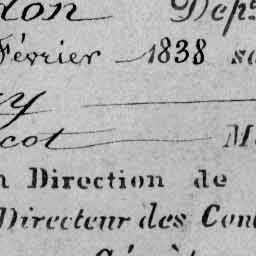 don Dép
Février 1838
cot M
n Direction de
Directeur des Con